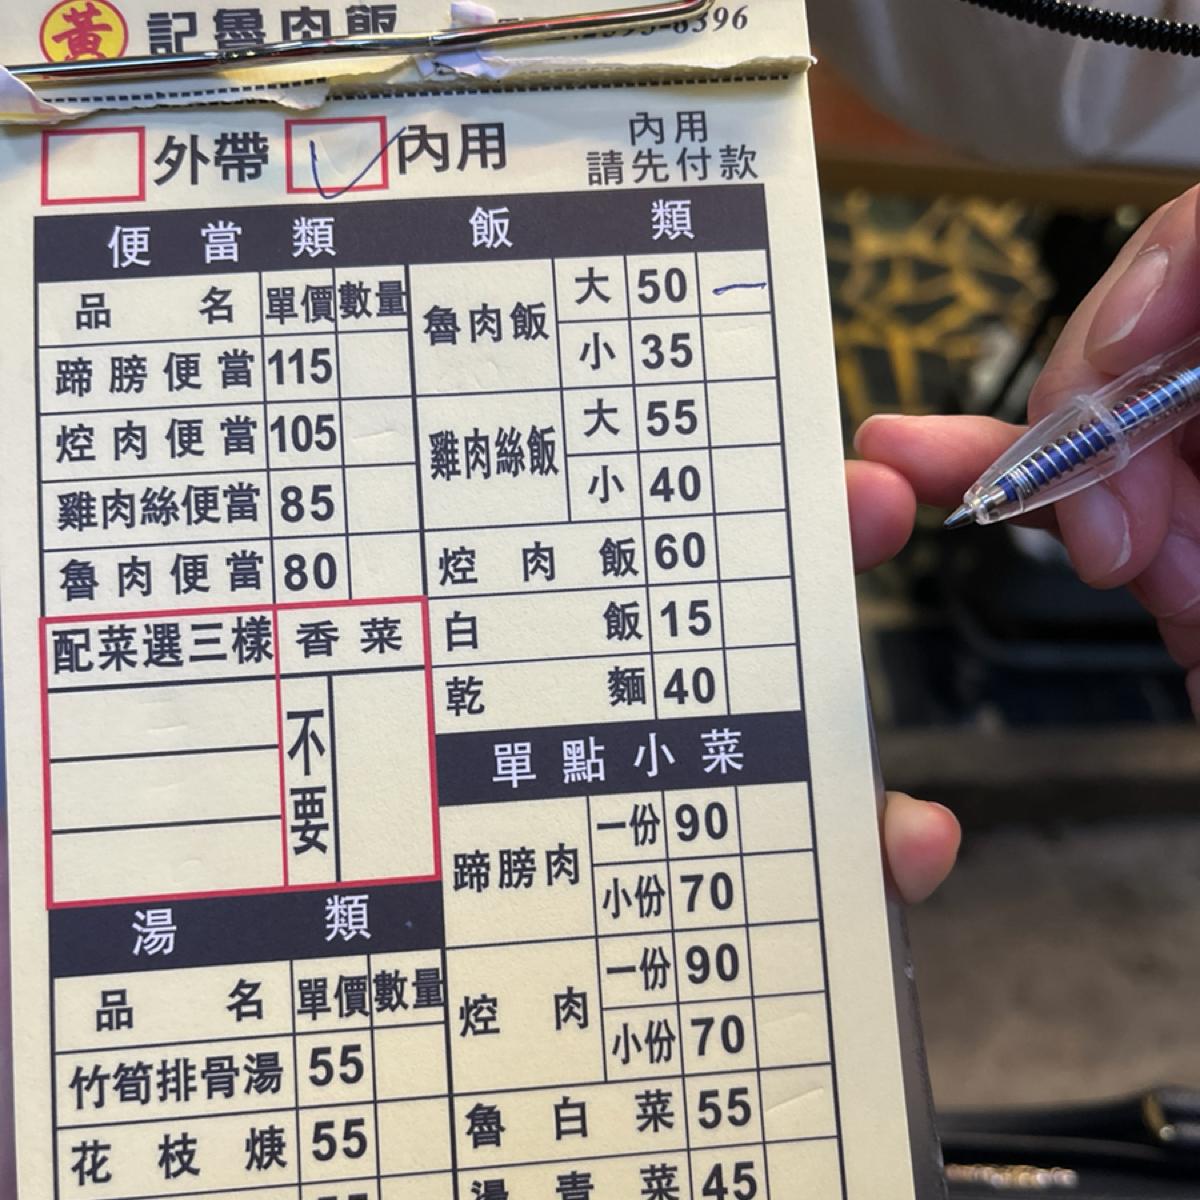 黃 記魯肉飯
外帶 內用 內用
請先付款
便當類
品名 單價 數量
蹄膀便當 115
焢肉便當 105
雞肉絲便當 85
魯肉便當 80
配菜選三樣 香菜
不要
湯類
品名 單價 數量
竹筍排骨湯 55
花枝焿 55
飯類
魯肉飯 大 50 一
小 35
雞肉絲飯 大 55
小 40
焢肉飯 60
白飯 15
乾麵 40
單點小菜
蹄膀肉 一份 90
小份 70
焢肉 一份 90
小份 70
魯白菜 55
湯青菜 45